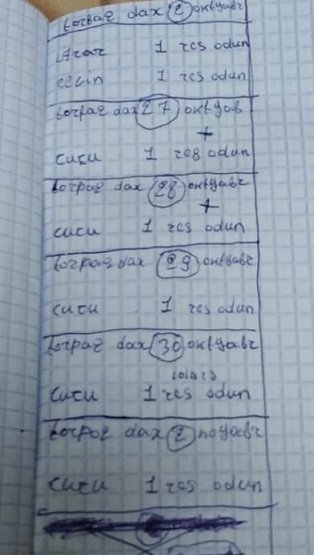 torpag dax 2 oktyabr
1 res odun
elvin 1 res odun
torpag dax 27 oktyab
+
cucu 1 res odun
torpag dax 28 oktyabr
+
cucu 1 res odun
torpag dax 29 oktyabr
cucu 1 res odun
torpag dax 30 oktyabr
cucu 1 res odun
torpag dax 2 noyabr
cucu 1 res odun